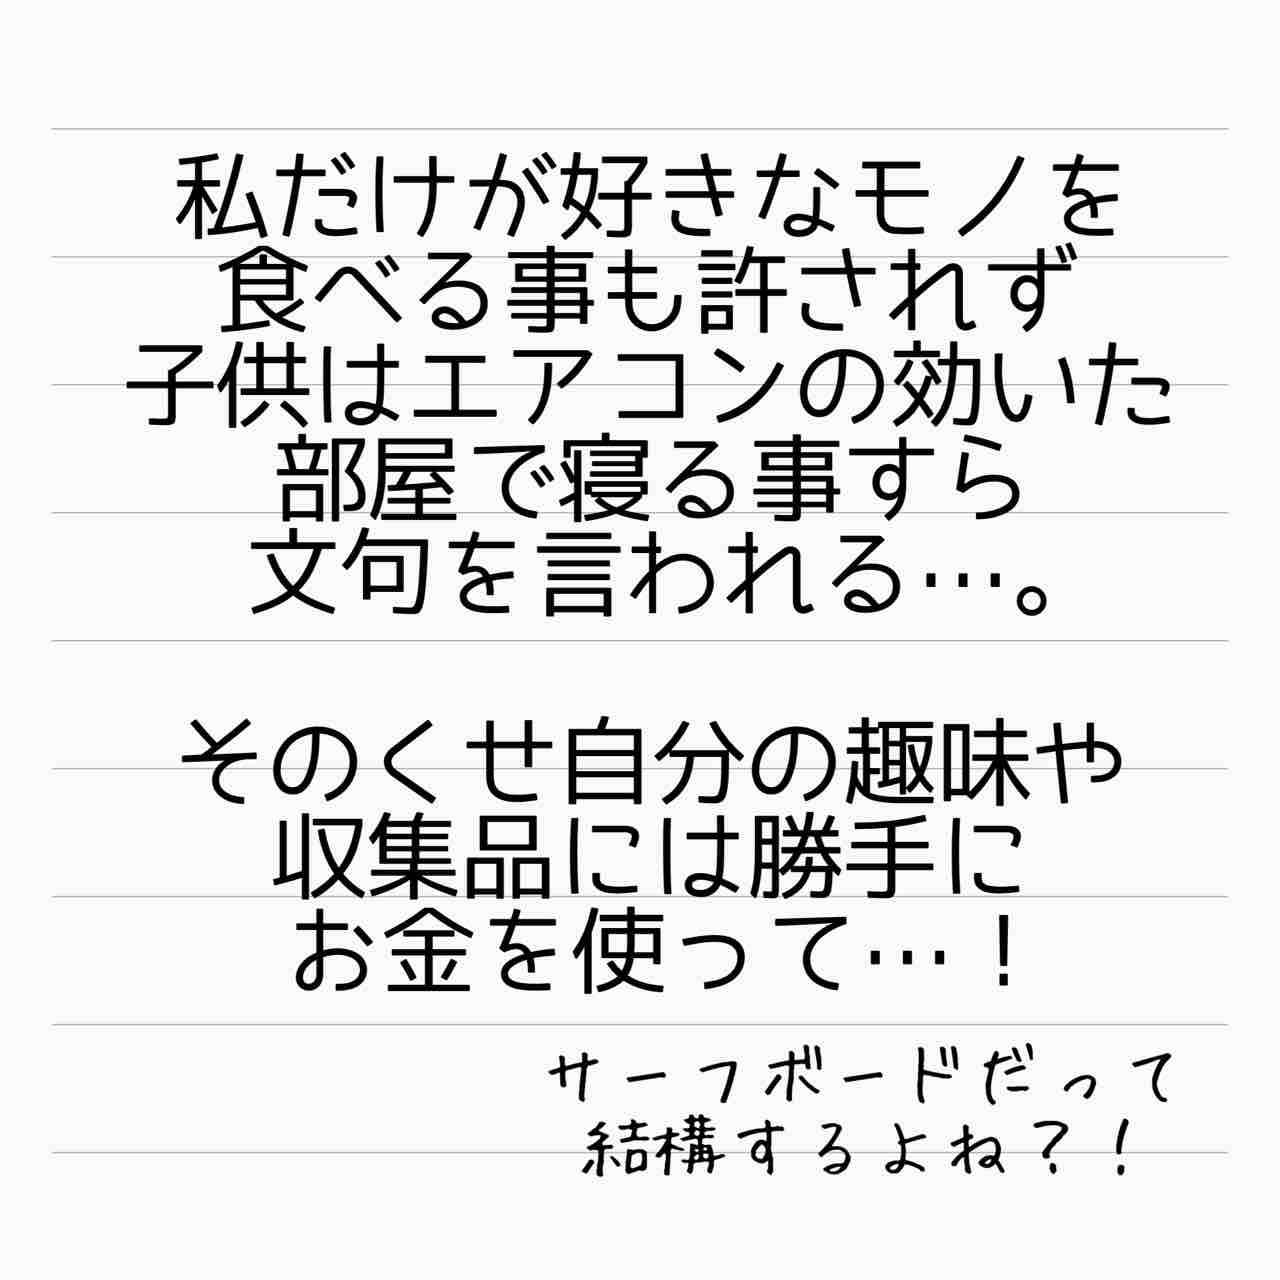 私だけが好きなモノを
食べる事も許されず
子供はエアコンの効いた
部屋で寝る事すら
文句を言われる…。
そのくせ自分の趣味や
収集品には勝手に
お金を使って…！
サーフボードだって
結構するよね？！